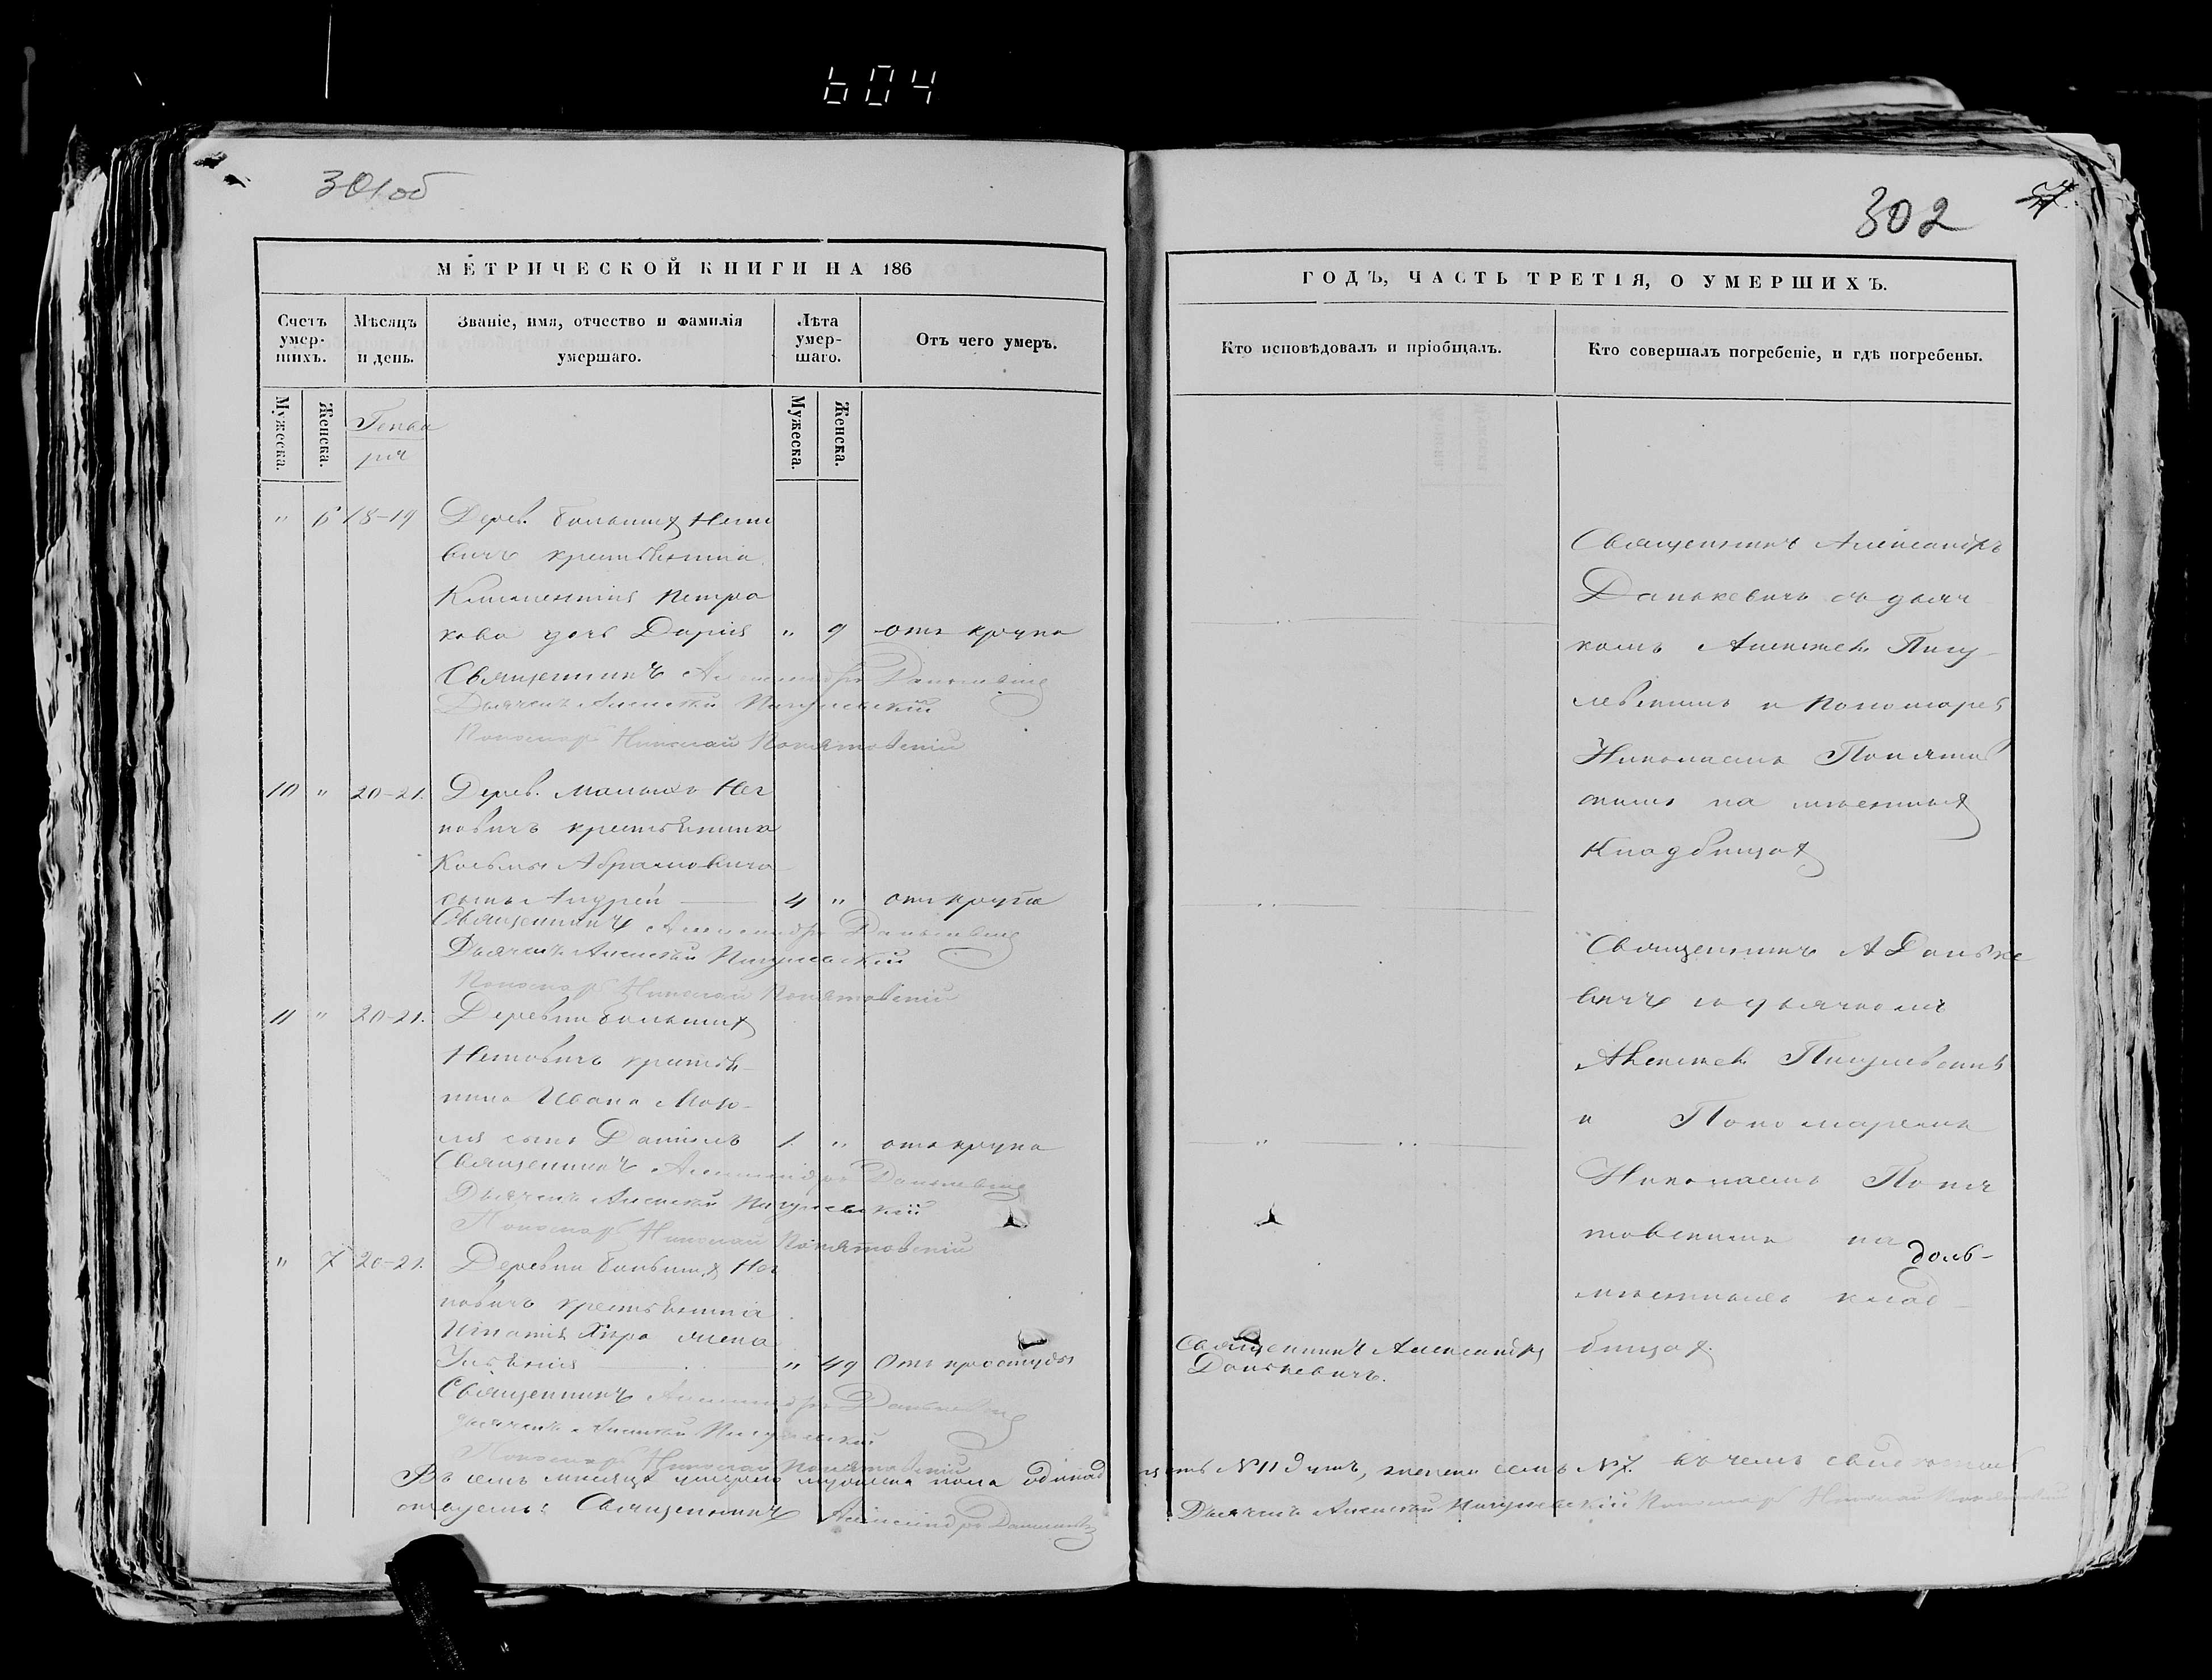 604
301об
302
МЕТРИЧЕСКОЙ КНИГИ НА 186
ГОДЪ, ЧАСТЬ ТРЕТІЯ, О УМЕРШИХЪ.
Счетъ умер-шихъ.
Мѣсяцъ и день.
Званіе, имя, отчество и фамилія умершаго.
Лѣта умер-шаго.
Отъ чего умеръ.
Кто исповѣдовалъ и пріобщалъ.
Кто совершалъ погребеніе, и гдѣ погребены.
Мужеска.
Женска.
Генва
ря
Мужеска.
Женска.
" 6 18-19 Дерев. Большихъ
вичъ крестьянина
Климентія Петра
кова дочь Дарія " 9 отъ крупа
Священникъ Александръ Данькевичъ
Дьячекъ Алексѣй Пигулевскій
Пономарь Николай Понятовскій
10 " 20-21. Дерев. Малыхъ Неп
новичъ крестьянина
Козьмы Абрамовича
сынъ Андрей 4 " отъ крупа
Священникъ Александръ Данькевичъ
Дьячекъ Алексѣй Пигулевскій
Пономарь Николай Понятовскій
11 " 20-21. Деревни Большихъ
крестья-
нина Ивана
сынъ Даніилъ 1. " отъ крупа
Священникъ Александръ Данькевичъ
Дьячекъ Алексѣй Пигулевскій
Пономарь Николай Понятовскій
" 7 20-21. Деревни Большихъ
новичъ крестьянина
Игнатія жена
Ульянія " 49 Отъ простуды
Священникъ Александръ Данькевичъ
Дьячекъ Алексѣй Пигулевскій
Пономарь Николай Понятовскій
Въ семъ мѣсяцѣ умерло мужеска пола одинад
отвуемъ: Священникъ Александръ Данькевичъ
Священникъ Александръ
Данькевичъ.
Священникъ Александръ
Данькевичъ съ дьяч
комъ Алексѣемъ Пигу-
левскимъ и Пономаремъ
Николаемъ Понятов
скимъ на мѣстныхъ
Кладбищахъ
Священникъ А Данке
вичъ съ дьячкомъ
Алексѣемъ Пигулевскимъ
и Пономаремъ
Николаемъ Поня
товскимъ на
мѣстныхъ клад-
бищахъ.
цать №11 душъ, женска семь №7. въ чемъ свидѣтель
Дьячекъ Алексѣй Пигулевскій Пономарь Николай Понятовскій